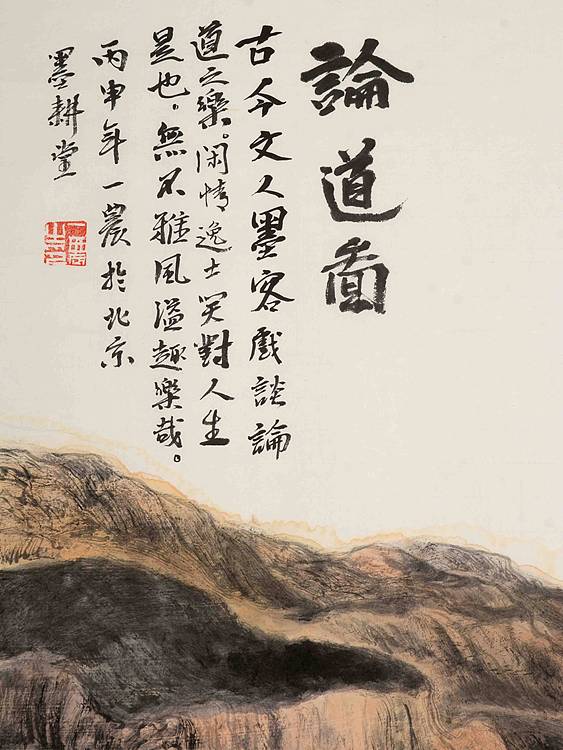 論道圖
古今文人墨客戲談論
道之樂。闲情逸士笑對人生
是也。無不雅風溢趣樂哉。
丙申年一農於北京
墨耕堂